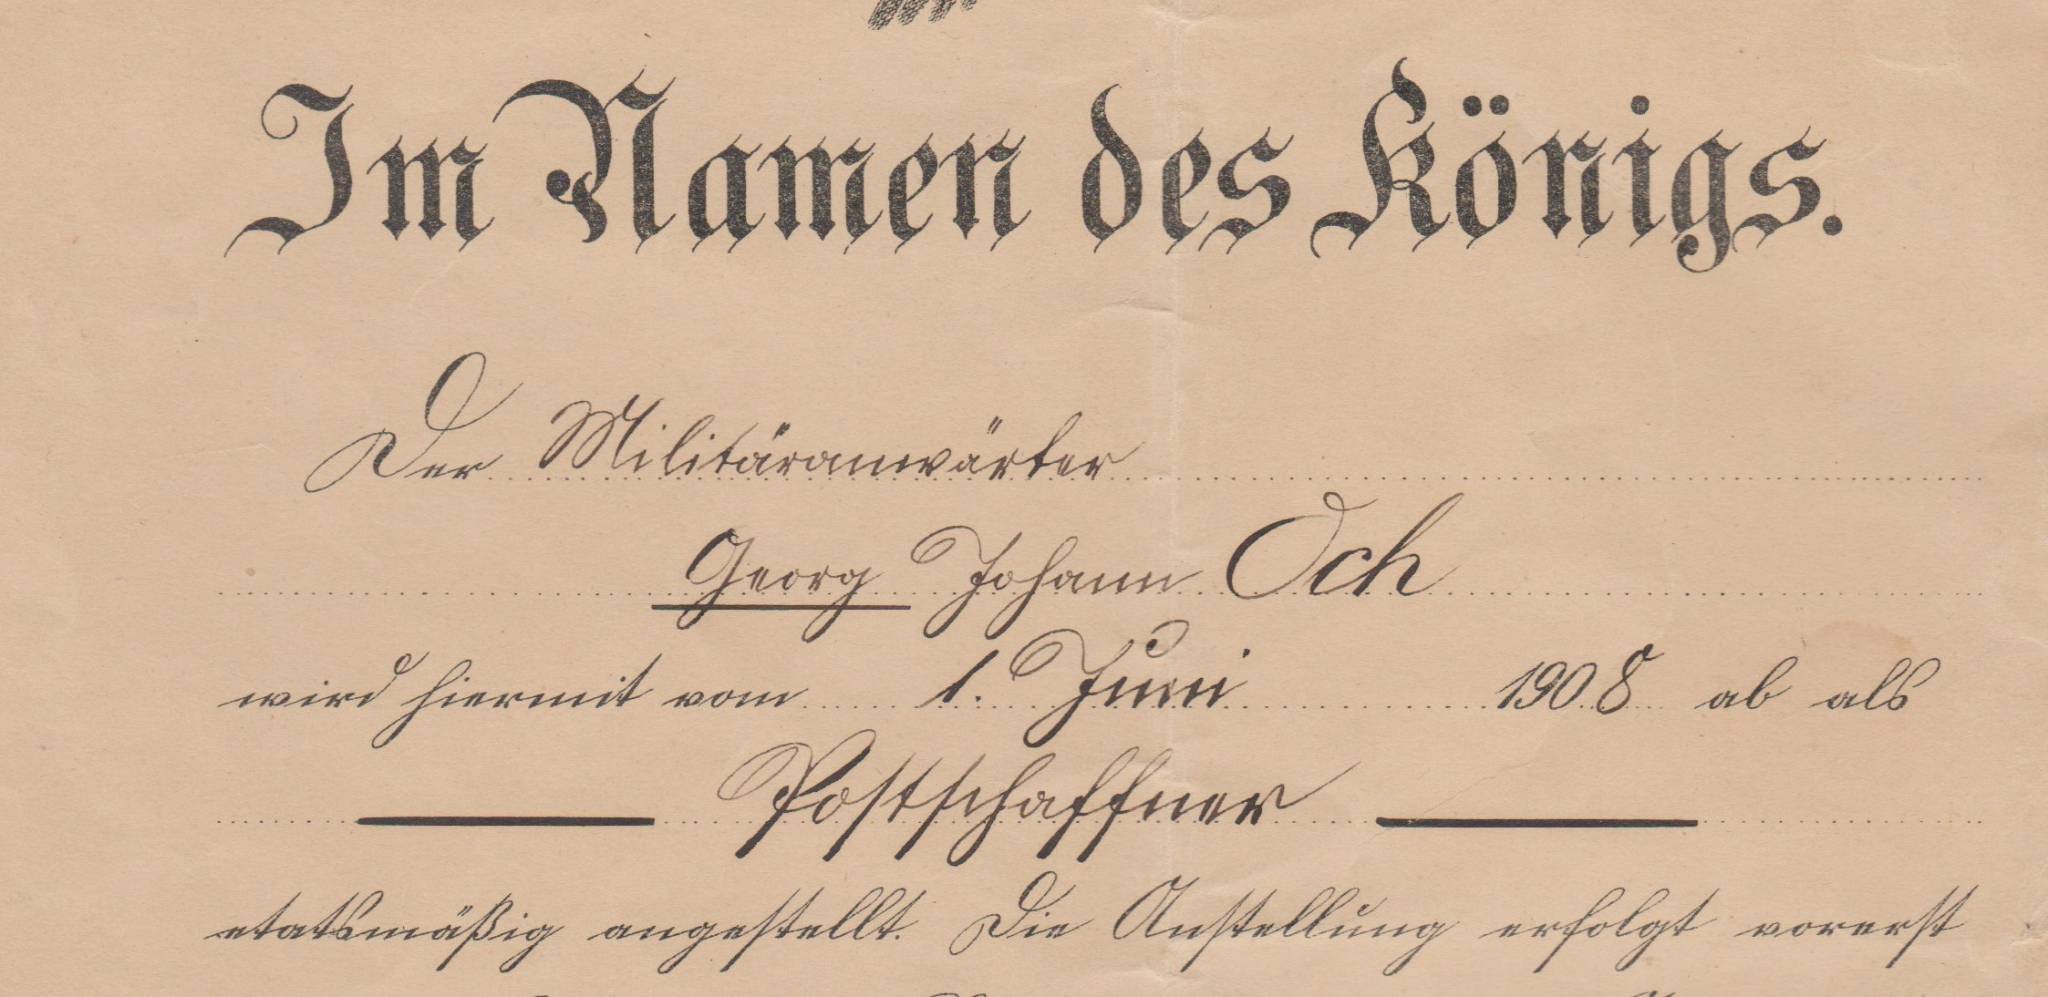 Im Namen des Königs.
Der Militäranwärter
Georg Johann Och
wird hiermit vom 1. Juni 1908 ab als
Postschaffner
etatsmäßig angestellt. Die Anstellung erfolgt vorerst